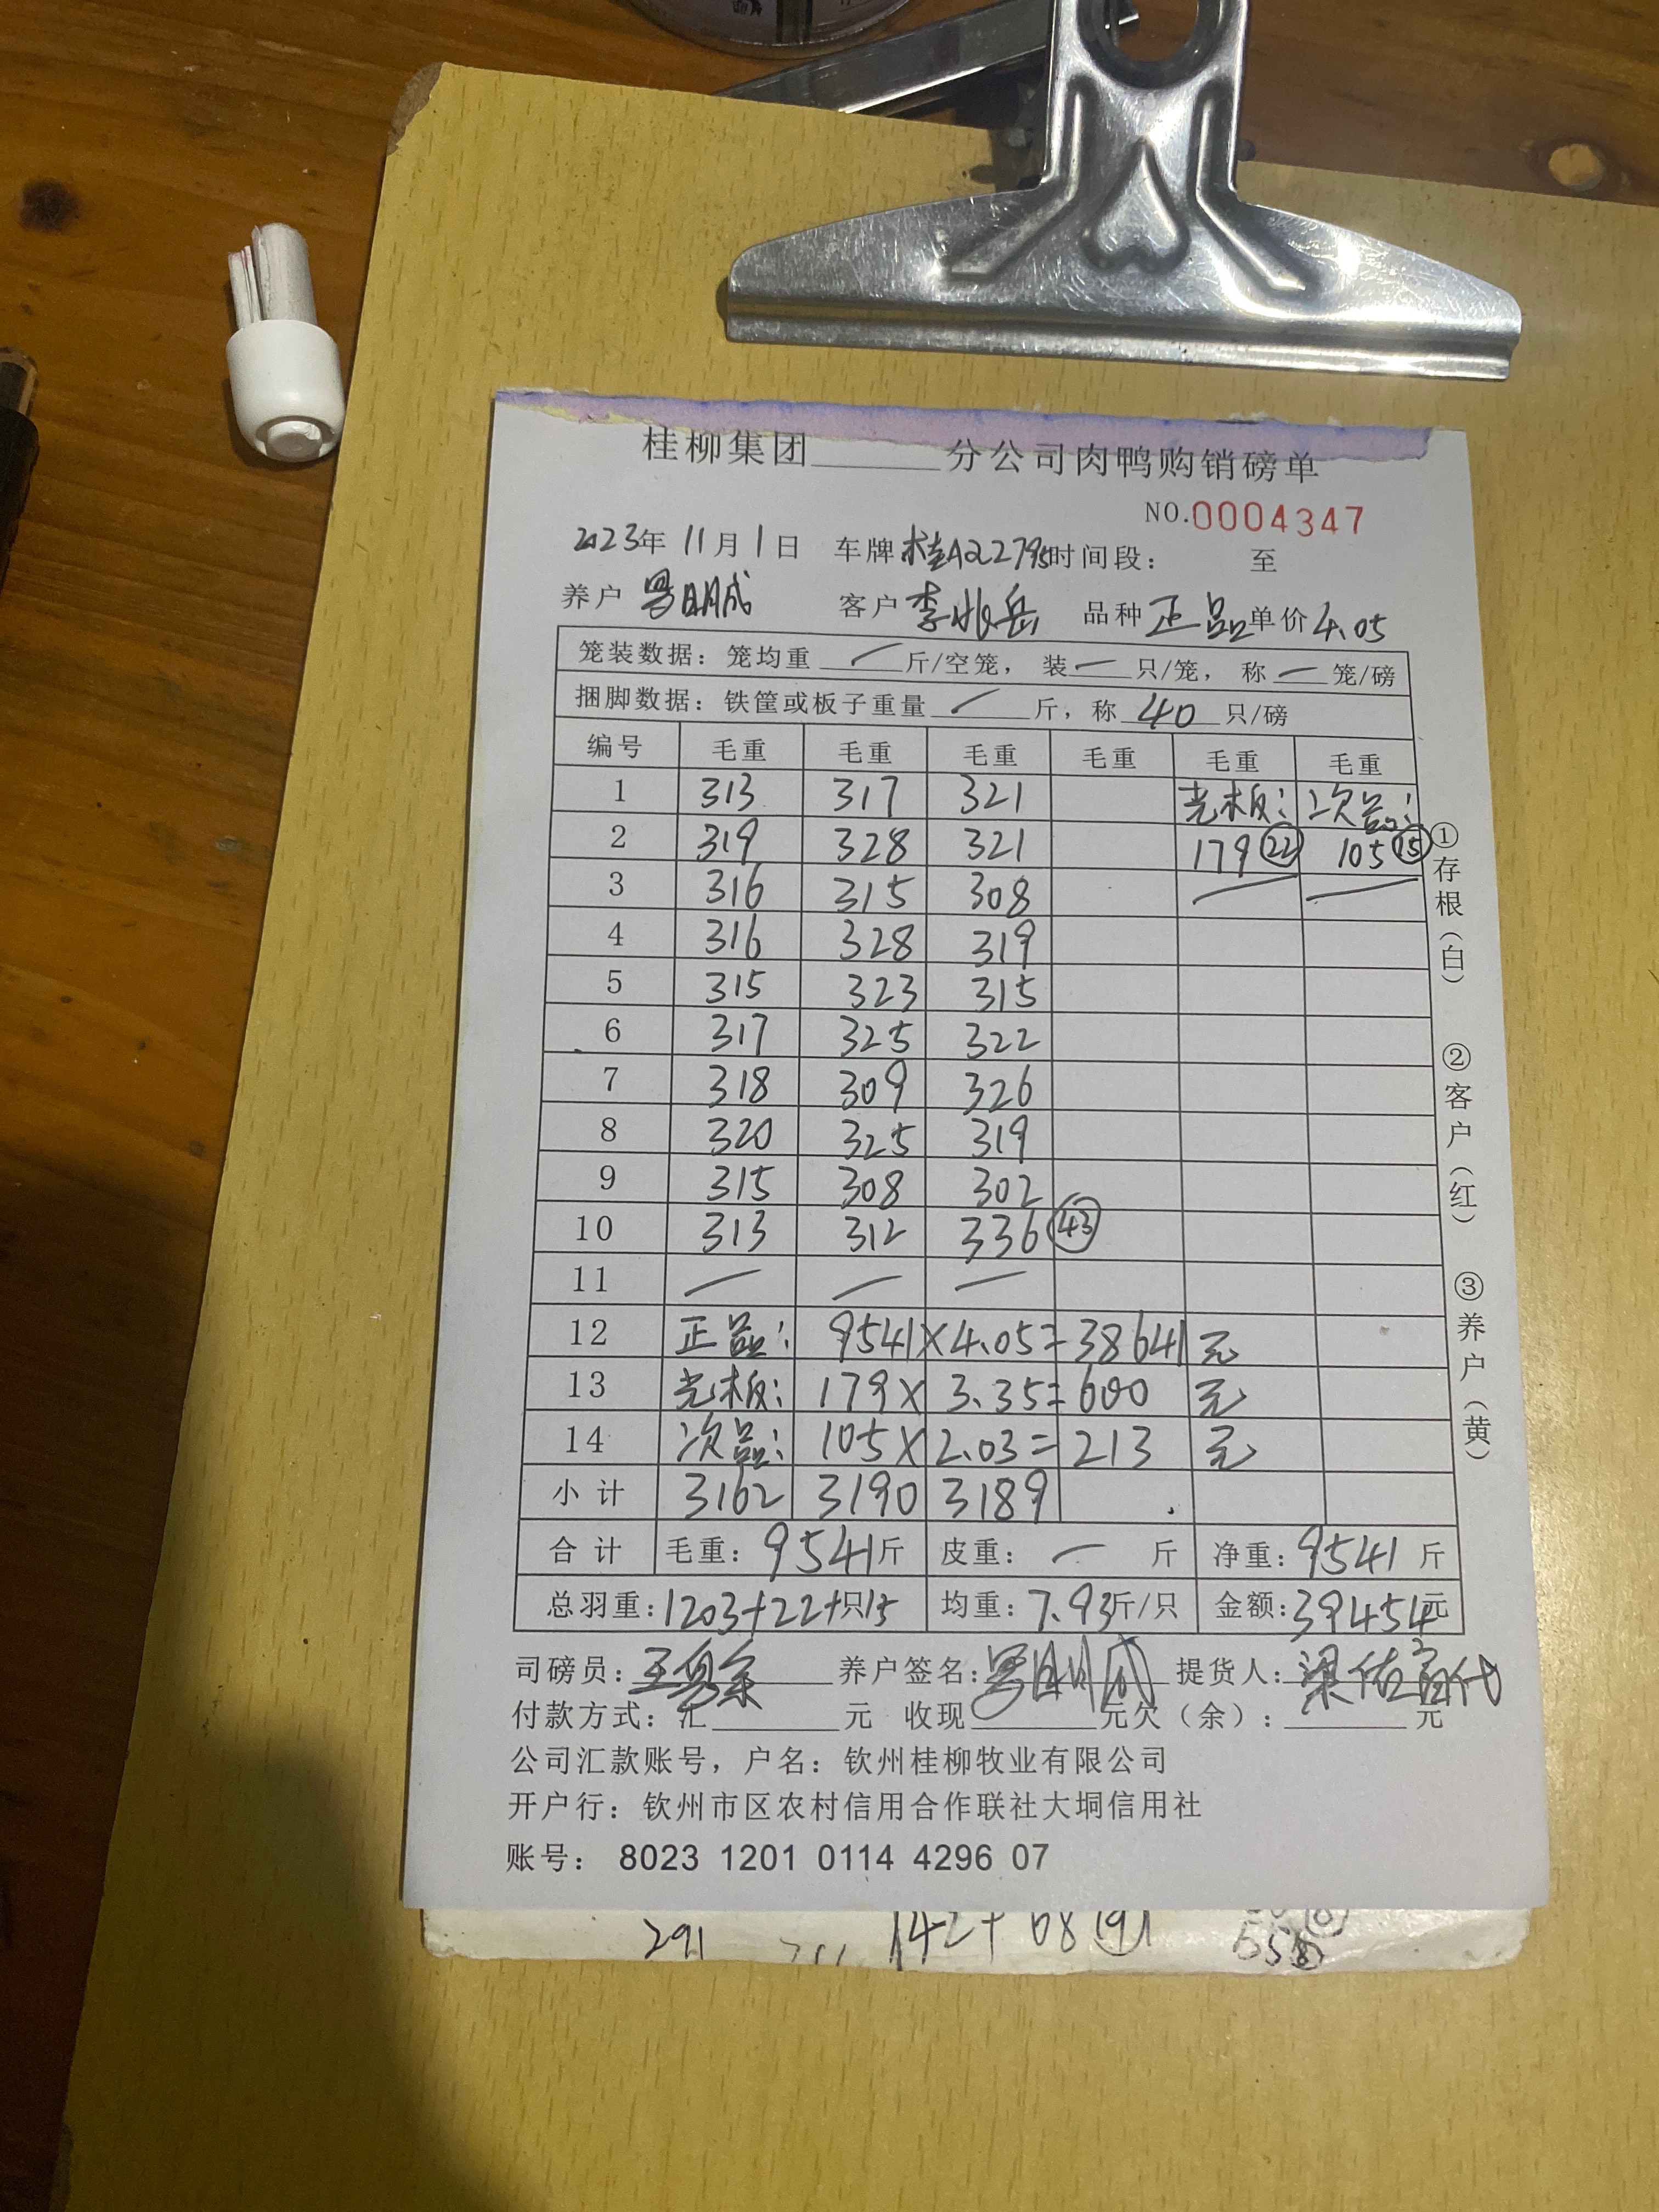 桂柳集团______分公司肉鸭购销磅单
NO.0004347
2023年 11月 1日 车牌 桂A22795 时间段： 至
养户 明成 客户 李兆岳 品种 正品 单价 4.05
笼装数据：笼均重 / 斤/空笼，装 — 只/笼，称 — 笼/磅
捆脚数据：铁筐或板子重量 / 斤，称 40 只/磅
编号 毛重 毛重 毛重 毛重 毛重 毛重
1 313 317 321 光板： 次品：
2 319 328 321 179 ㉒ 105 ⑮
3 316 315 308 — —
4 316 328 319
5 315 323 315
6 317 325 322
7 318 309 326
8 320 325 319
9 315 308 302
10 313 312 336 ㊸
11 — — —
12 正品： 9541×4.05=38641元
13 光板： 179×3.35=600元
14 次品： 105×2.03=213元
小计 3162 3190 3189
合计 毛重：9541斤 皮重：—斤 净重：9541斤
总羽重：1203+22+15只 均重：7.93斤/只 金额：39454元
司磅员： 养户签名： 明成 提货人：梁佑 代
付款方式：汇______元 收现______元欠（余）：______元
公司汇款账号，户名：钦州桂柳牧业有限公司
开户行：钦州市区农村信用合作联社大垌信用社
账号： 8023 1201 0114 4296 07
①存根（白） ②客户（红） ③养户（黄）
291